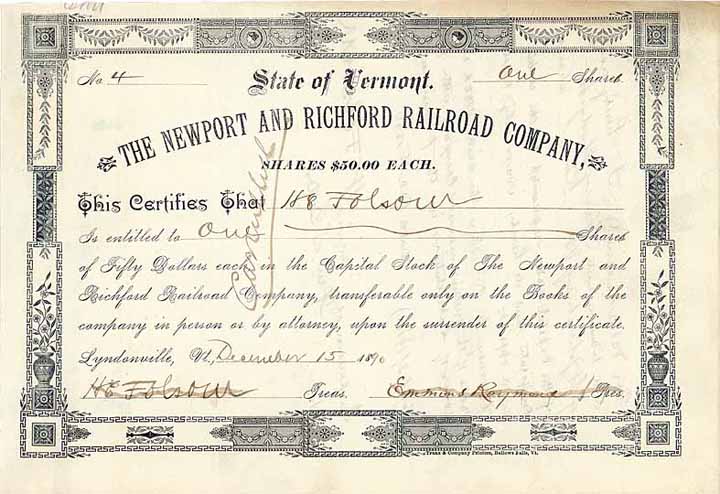 No. 4 State of Vermont. One Shares
THE NEWPORT AND RICHFORD RAILROAD COMPANY,
SHARES $50.00 EACH.
This Certifies That H E Folsom
Is entitled to One Shares
of Fifty Dollars each in the Capital Stock of The Newport and
Richford Railroad Company, transferable only on the Books of the
company in person or by attorney, upon the surrender of this certificate.
Lyndonville, Vt, December 15 1890
H E Folsom Treas. Emmons Raymond Pres.
Truax & Company Printers, Bellows Falls, Vt.
Cancelled